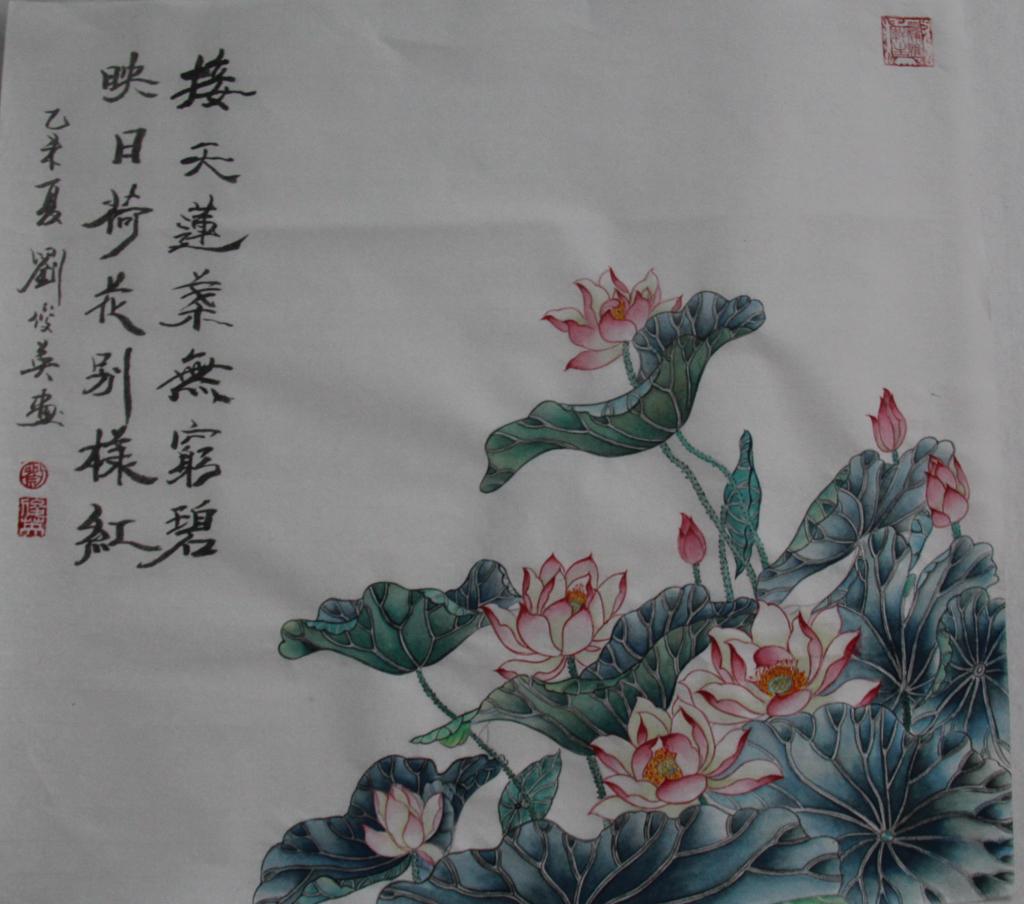 接天蓮葉無窮碧
映日荷花别樣紅
乙未夏劉俊英畫